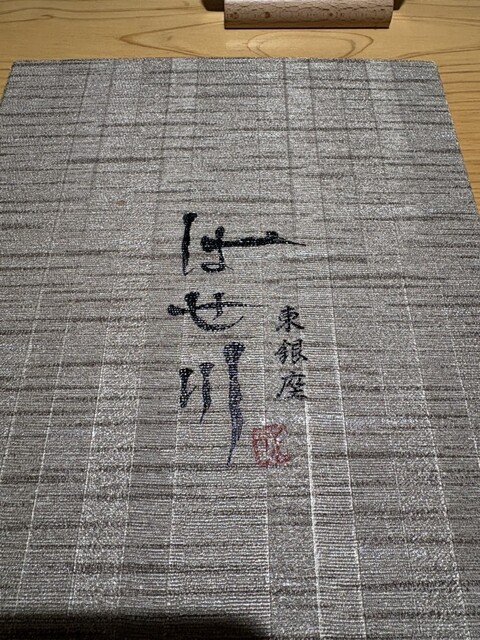 東銀座
はせ川